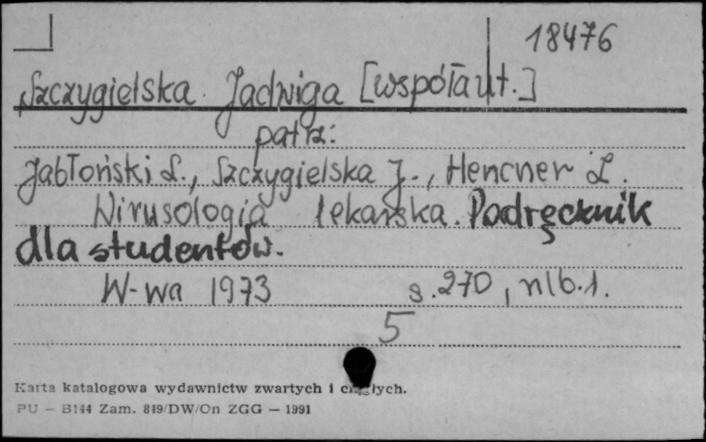 18476
Szczygielska Jadwiga [współaut.]
patrz:
Jabłoński L., Szczygielska J., Hencner L.
Wirusologia lekarska. Podręcznik
dla studentów.
W-wa 1973 s. 270, nlb. 1.
5
Karta katalogowa wydawnictw zwartych i ciągłych.
PU — B144 Zam. 819/DW/On ZGG — 1991